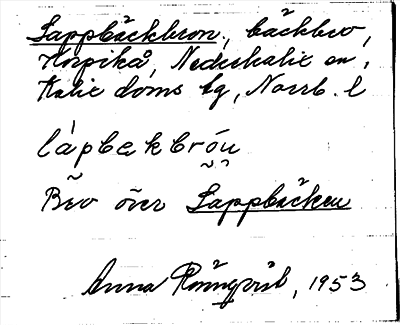 Lappbäckbron, bäckbro,
Korpikå, Nederkalix sn,
Kalix doms lg, Norrb. l
làpbækbróu
Bro över Lappbäcken
Anna Rönnqvist, 1953